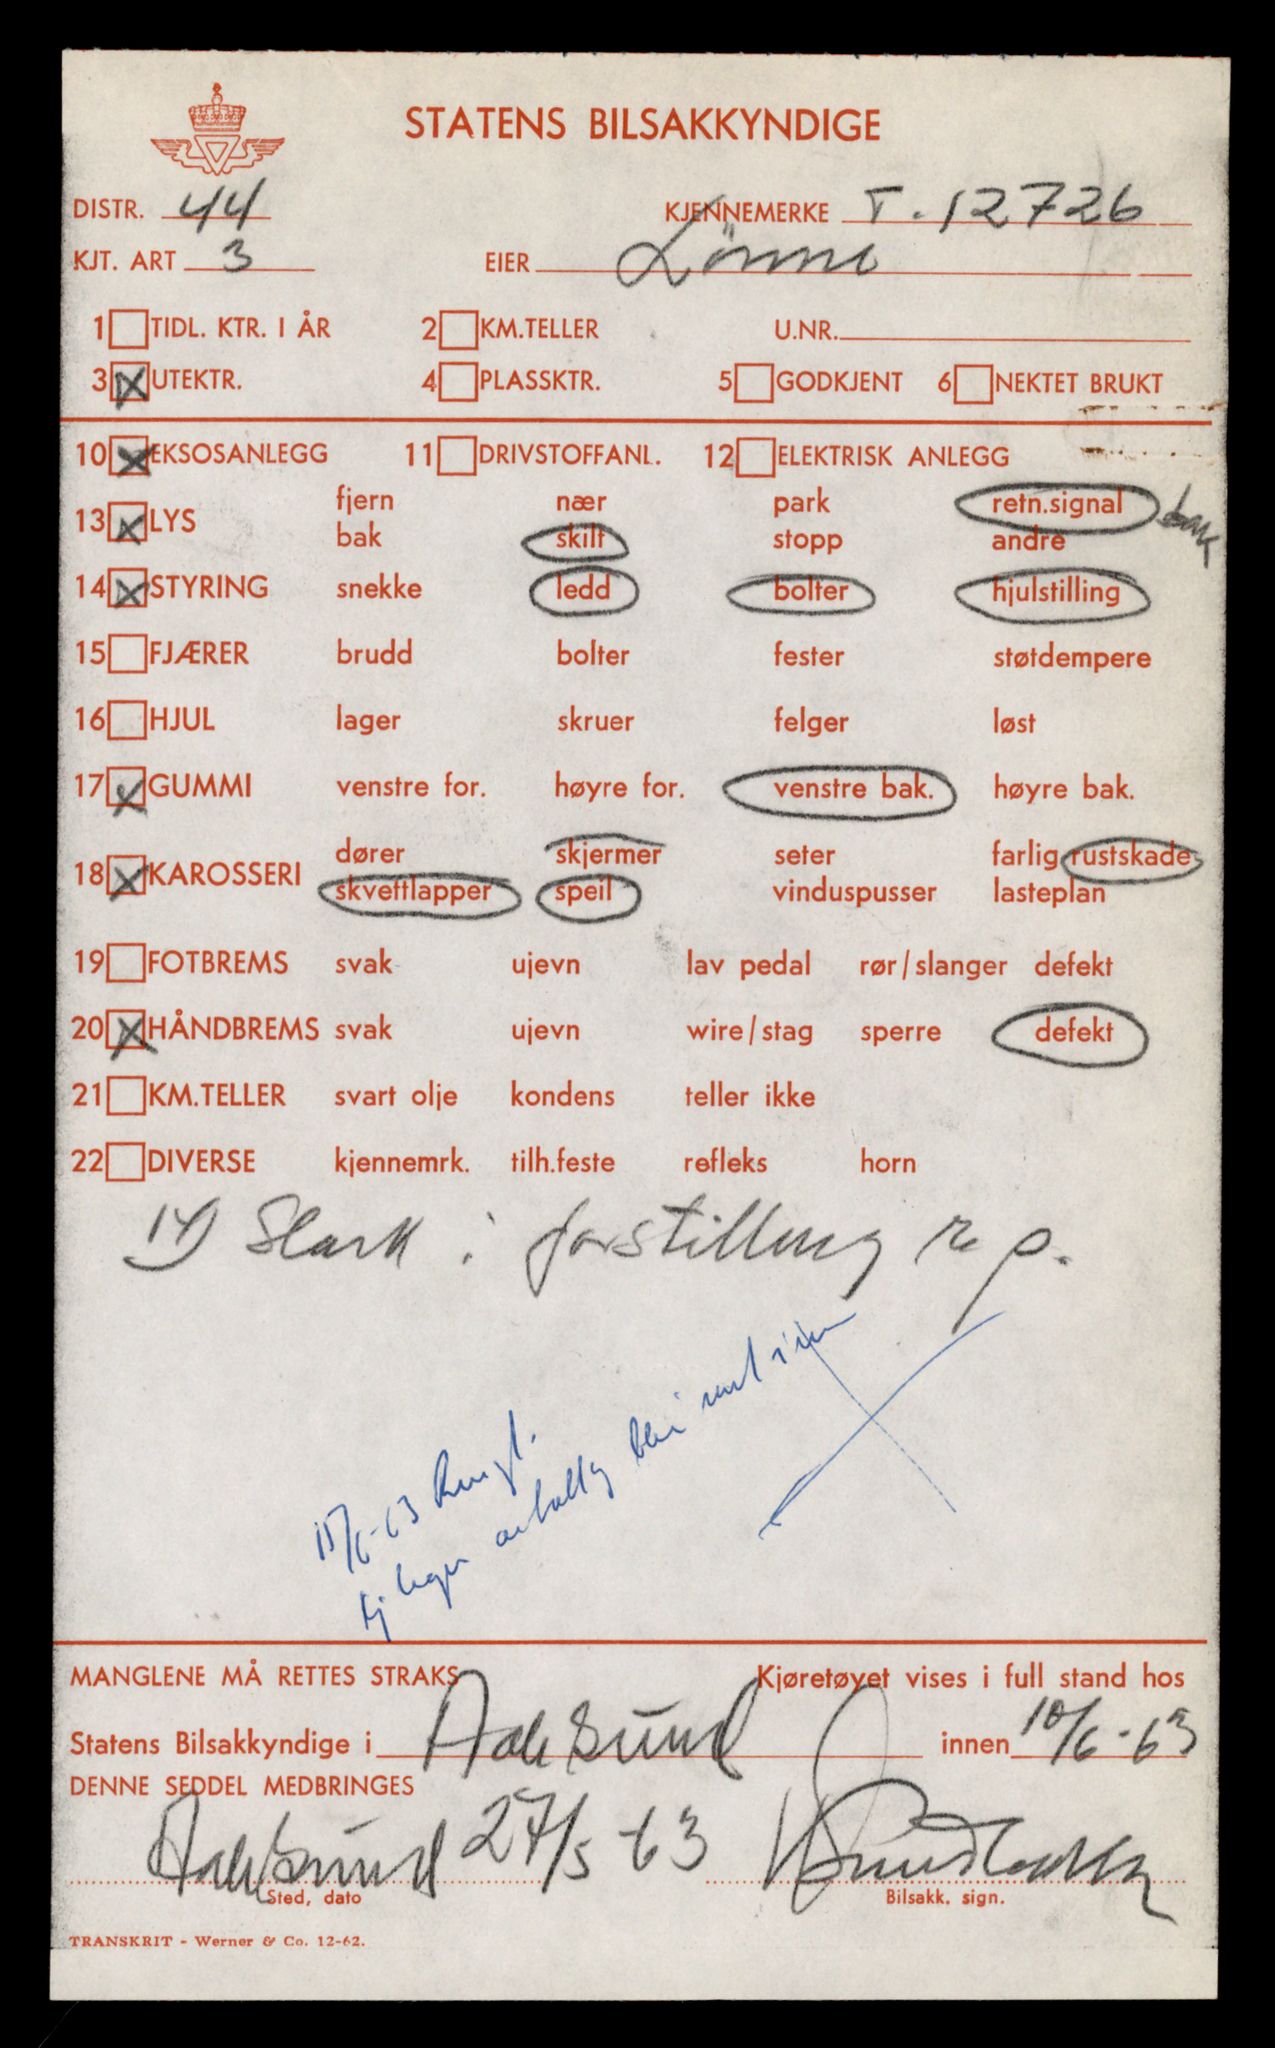 STATENS BILSAKKYNDIGE
DISTR. 44 KJENNEMERKE T-12726
KJT. ART 3 EIER Lönne
1 TIDL. KTR. I ÅR 2 KM.TELLER U.NR.
3 X UTEKTR. 4 PLASSKTR. 5 GODKJENT 6 NEKTET BRUKT
10 X EKSOSANLEGG 11 DRIVSTOFFANL. 12 ELEKTRISK ANLEGG
fjern nær park retn.signal bak
13 X LYS
bak skilt stopp andre
14 X STYRING snekke ledd bolter hjulstilling
15 FJÆRER brudd bolter fester støtdempere
16 HJUL lager skruer felger løst
17 X GUMMI venstre for. høyre for. venstre bak. høyre bak.
dører skjermer seter farlig rustskade
18 X KAROSSERI
skvettlapper speil vinduspusser lasteplan
19 FOTBREMS svak ujevn lav pedal rør/slanger defekt
20 X HÅNDBREMS svak ujevn wire/stag sperre defekt
21 KM.TELLER svart olje kondens teller ikke
22 DIVERSE kjennemrk. tilh.feste refleks horn
14) Slark i forstilling rep.
15/6-63 Ringt.
MANGLENE MÅ RETTES STRAKS Kjøretøyet vises i full stand hos
Statens Bilsakkyndige i Aalesund innen 10/6-63
DENNE SEDDEL MEDBRINGES
Aalesund 27/5-63
Sted, dato Bilsakk. sign.
TRANSKRIT - Werner & Co. 12-62.